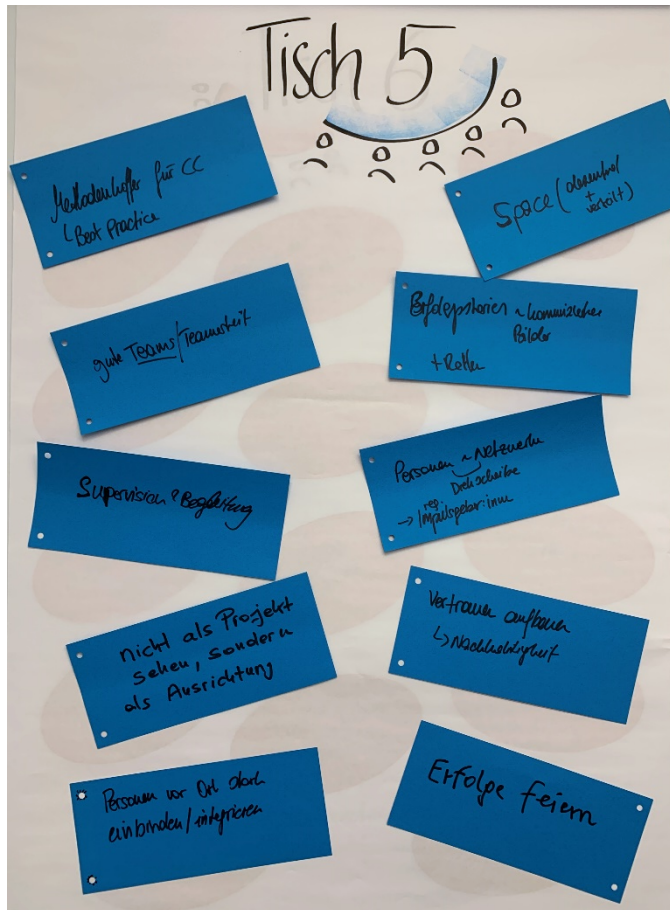 Tisch 5
Methodenkoffer für CC
↳ Best Practice
gute Teams/Teamarbeit
Supervision & Begleitung
nicht als Projekt
sehen, sondern
als Ausrichtung
Personen vor Ort stark
einbinden/integrieren
Space (dezentral
+
verteilt)
Erfolgsstorien ~
Bilder
+ Reden
Personen ~ Netzwerke
Drehscheibe
reg.
→ Impulsgeber:innen
Vertrauen aufbauen
↳ Nachhaltigkeit
Erfolge feiern